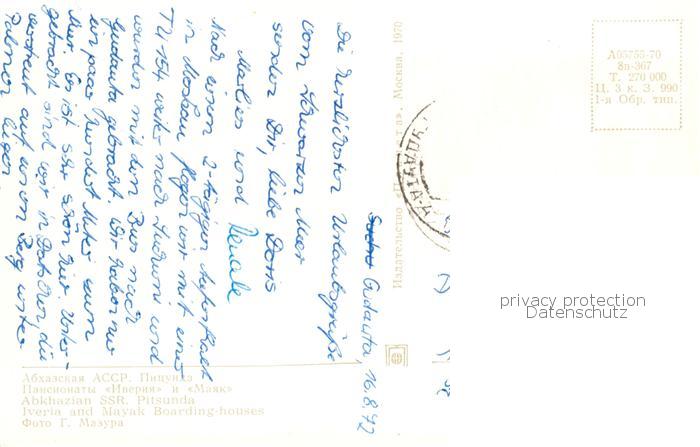 Gudauta, 16.8.72
Die herzlichsten Urlaubsgrüße
vom Schwarzen Meer
senden Dir, liebe Doris
Marlies und Renate
Nach einem 2-tägigen Aufenthalt
in Moskau flogen wir mit einer
TU 154 weiter nach Suchumi und
wurden mit dem Bus nach
Gudauta gebracht. Wir haben nur
ein paar hundert Meter zum
Meer. Es ist sehr schön hier. Unter-
gebracht sind wir in Datschen, die
verstreut auf einem Berg unter
Palmen liegen.
Издательство «Планета». Москва, 1970
А05755-70
8п-367
Т. 270 000
Ц. 3 к. З. 990
1-я Обр. тип.
Абхазская АССР. Пицунда
Пансионаты «Иверия» и «Маяк»
Abkhazian SSR. Pitsunda
Iveria and Mayak Boarding-houses
Фото Г. Мазура
privacy protection
Datenschutz